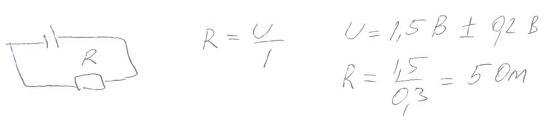 R
R = U/I
U = 1,5 В ± 0,2 В
R = 1,5/0,3 = 5 Ом